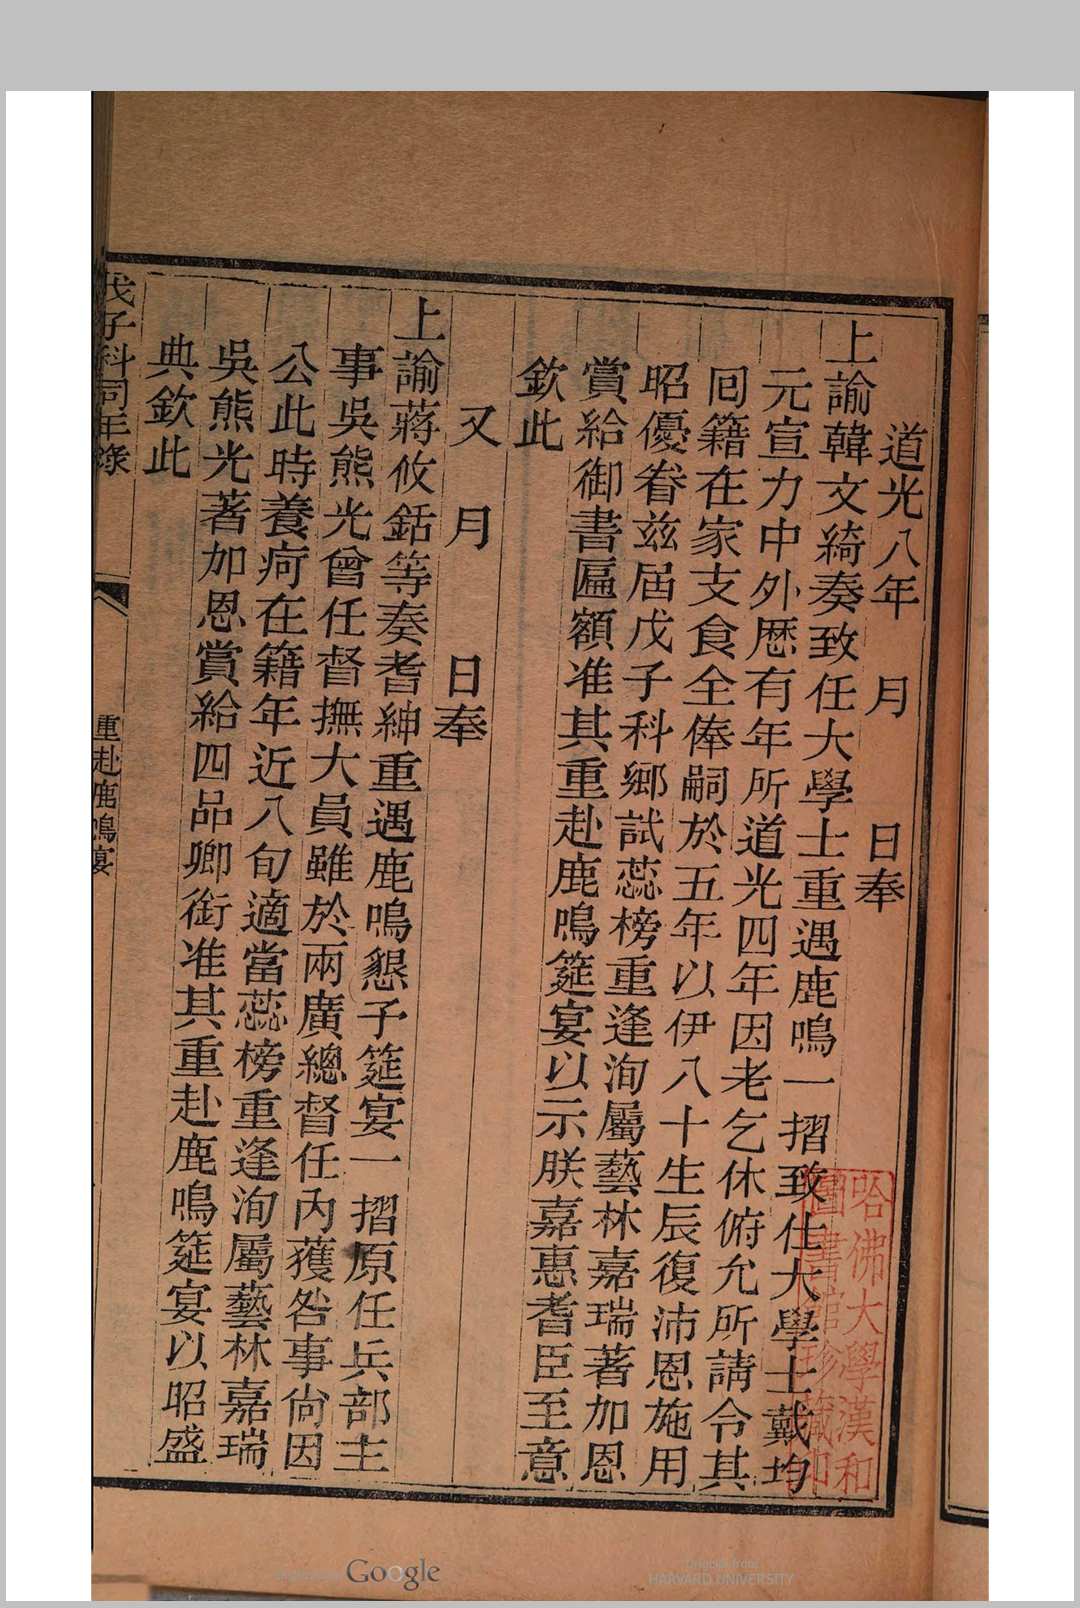 道光八年　月　日奉
上諭韓文綺奏致任大學士重遇鹿鳴一摺致仕大學士戴均
元宣力中外歷有年所道光四年因老乞休俯允所請令其
囘籍在家支食全俸嗣於五年以伊八十生辰復沛恩施用
昭優眷兹屆戊子科鄉試蕊榜重逢洵屬藝林嘉瑞著加恩
賞給御書匾額准其重赴鹿鳴筵宴以示朕嘉惠耆臣至意
欽此
又　月　日奉
上諭蔣攸銛等奏耆紳重遇鹿鳴懇予筵宴一摺原任兵部主
事吳熊光曾任督撫大員雖於兩廣總督任內獲咎事尙因
公此時養疴在籍年近八旬適當蕊榜重逢洵屬藝林嘉瑞
吳熊光著加恩賞給四品卿銜准其重赴鹿鳴筵宴以昭盛
典欽此
戊子科同年錄
重赴鹿鳴宴
哈佛大學漢和
圖書館珍藏印
Google
Original from
HARVARD UNIVERSITY